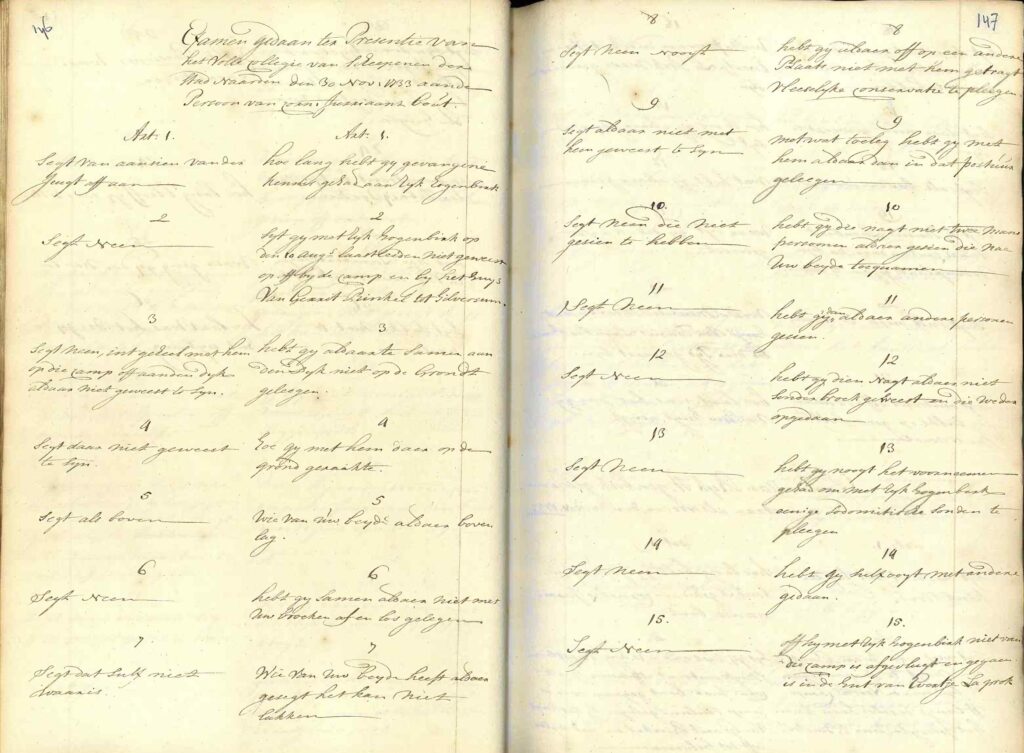 146
Examen gedaan ter Presentie van
het Volle Collegie van Scheepenen der
Stad Naarden den 30 Nov: 1733 aan de
Persoon van Corn: Jurriaans bout.
Art: 1.
Art: 1.
Segt van aansien van der
Jeugt aff aan
hoe lang hebt gy gevangene
kennis gehad aan Dyk Gogenbirk
2
2
Segt Neen
Syt gy met Dyk Gogenbirk op
den 10 Augt laastleeden niet geweest
op off by de Camp en by het Huys
Van Gerrit Runkel tot Hilversum
3
3
Segt Neen, int geheel met hem
op die Camp off aan den dyk
aldaar niet geweest te syn.
hebt gy aldaar te Samen aan
den Dyk niet op de Grondt
geleegen.
4
4
Segt daar niet geweest
te syn.
Hoe gy met hem daer op de
grond geraakte.
5
5
Segt als boven
Wie van uw beyde aldaer boven
lag.
6
6
Segt Neen
hebt gy Samen aldaer niet met
Uw broeken af en los gelegen
7
7
Segt dat Sulx niet
waar is.
Wie van Uw beyde heeft aldaer
gesegt het kan niet
lukken
147
8
8
Segt Neen Nooyt
hebt gy aldaer off op een andere
Plaats niet met hem getragt
Vleeselyke conversatie te pleegen
9
9
Segt aldaar niet met
hem geweest te syn
met wat toeleg hebt gy met
hem aldaar dan in dat postuur
geleegen
10.
10
Segt Neen die Niet
gesien te hebben
hebt gy die nagt niet twee mans
persoonen aldaer gesien die nae
Uw beyde toequamen
11
11
Segt Neen
hebt gy dan aldaer andere personen
gesien.
12
12
Segt Neen
hebt gy dien Nagt aldaer niet
Sonder broek geweest en die weder
opgedaan
13
13
Segt Neen
hebt gy nooyt het voorneemen
gehad om met Dyk Gogenbirk
eenige Sodomitische Sonden te
pleegen
14
14
Segt Neen
hebt gy sulx ooyt met andere
gedaan.
15.
15.
Segt Neen
off hy met Dyk Gogenbirk niet van
die Camp is afgevlugt en gegaen
is in de Hut van